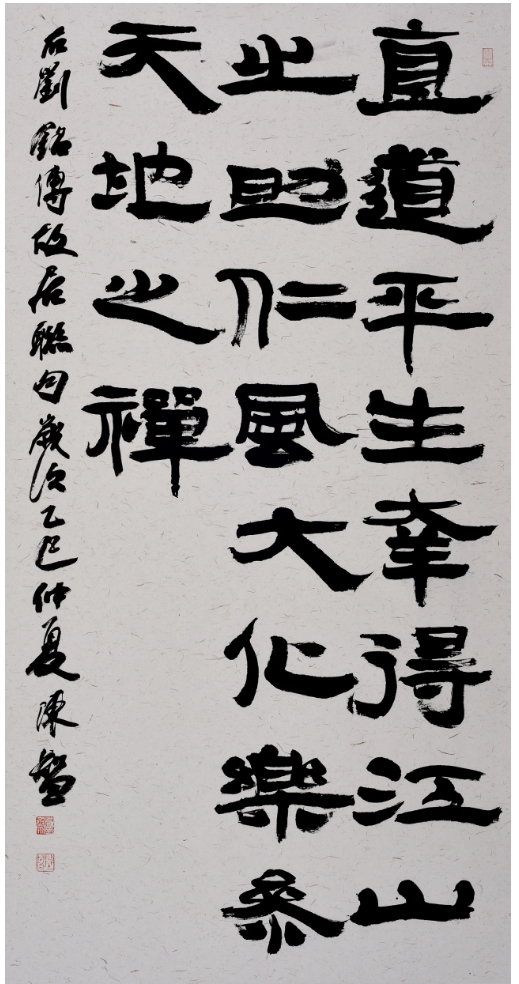 直道平生幸得江山
之助仁風大化樂參
天地之禪
右劉銘傳故居聯句歲次乙巳仲夏陳